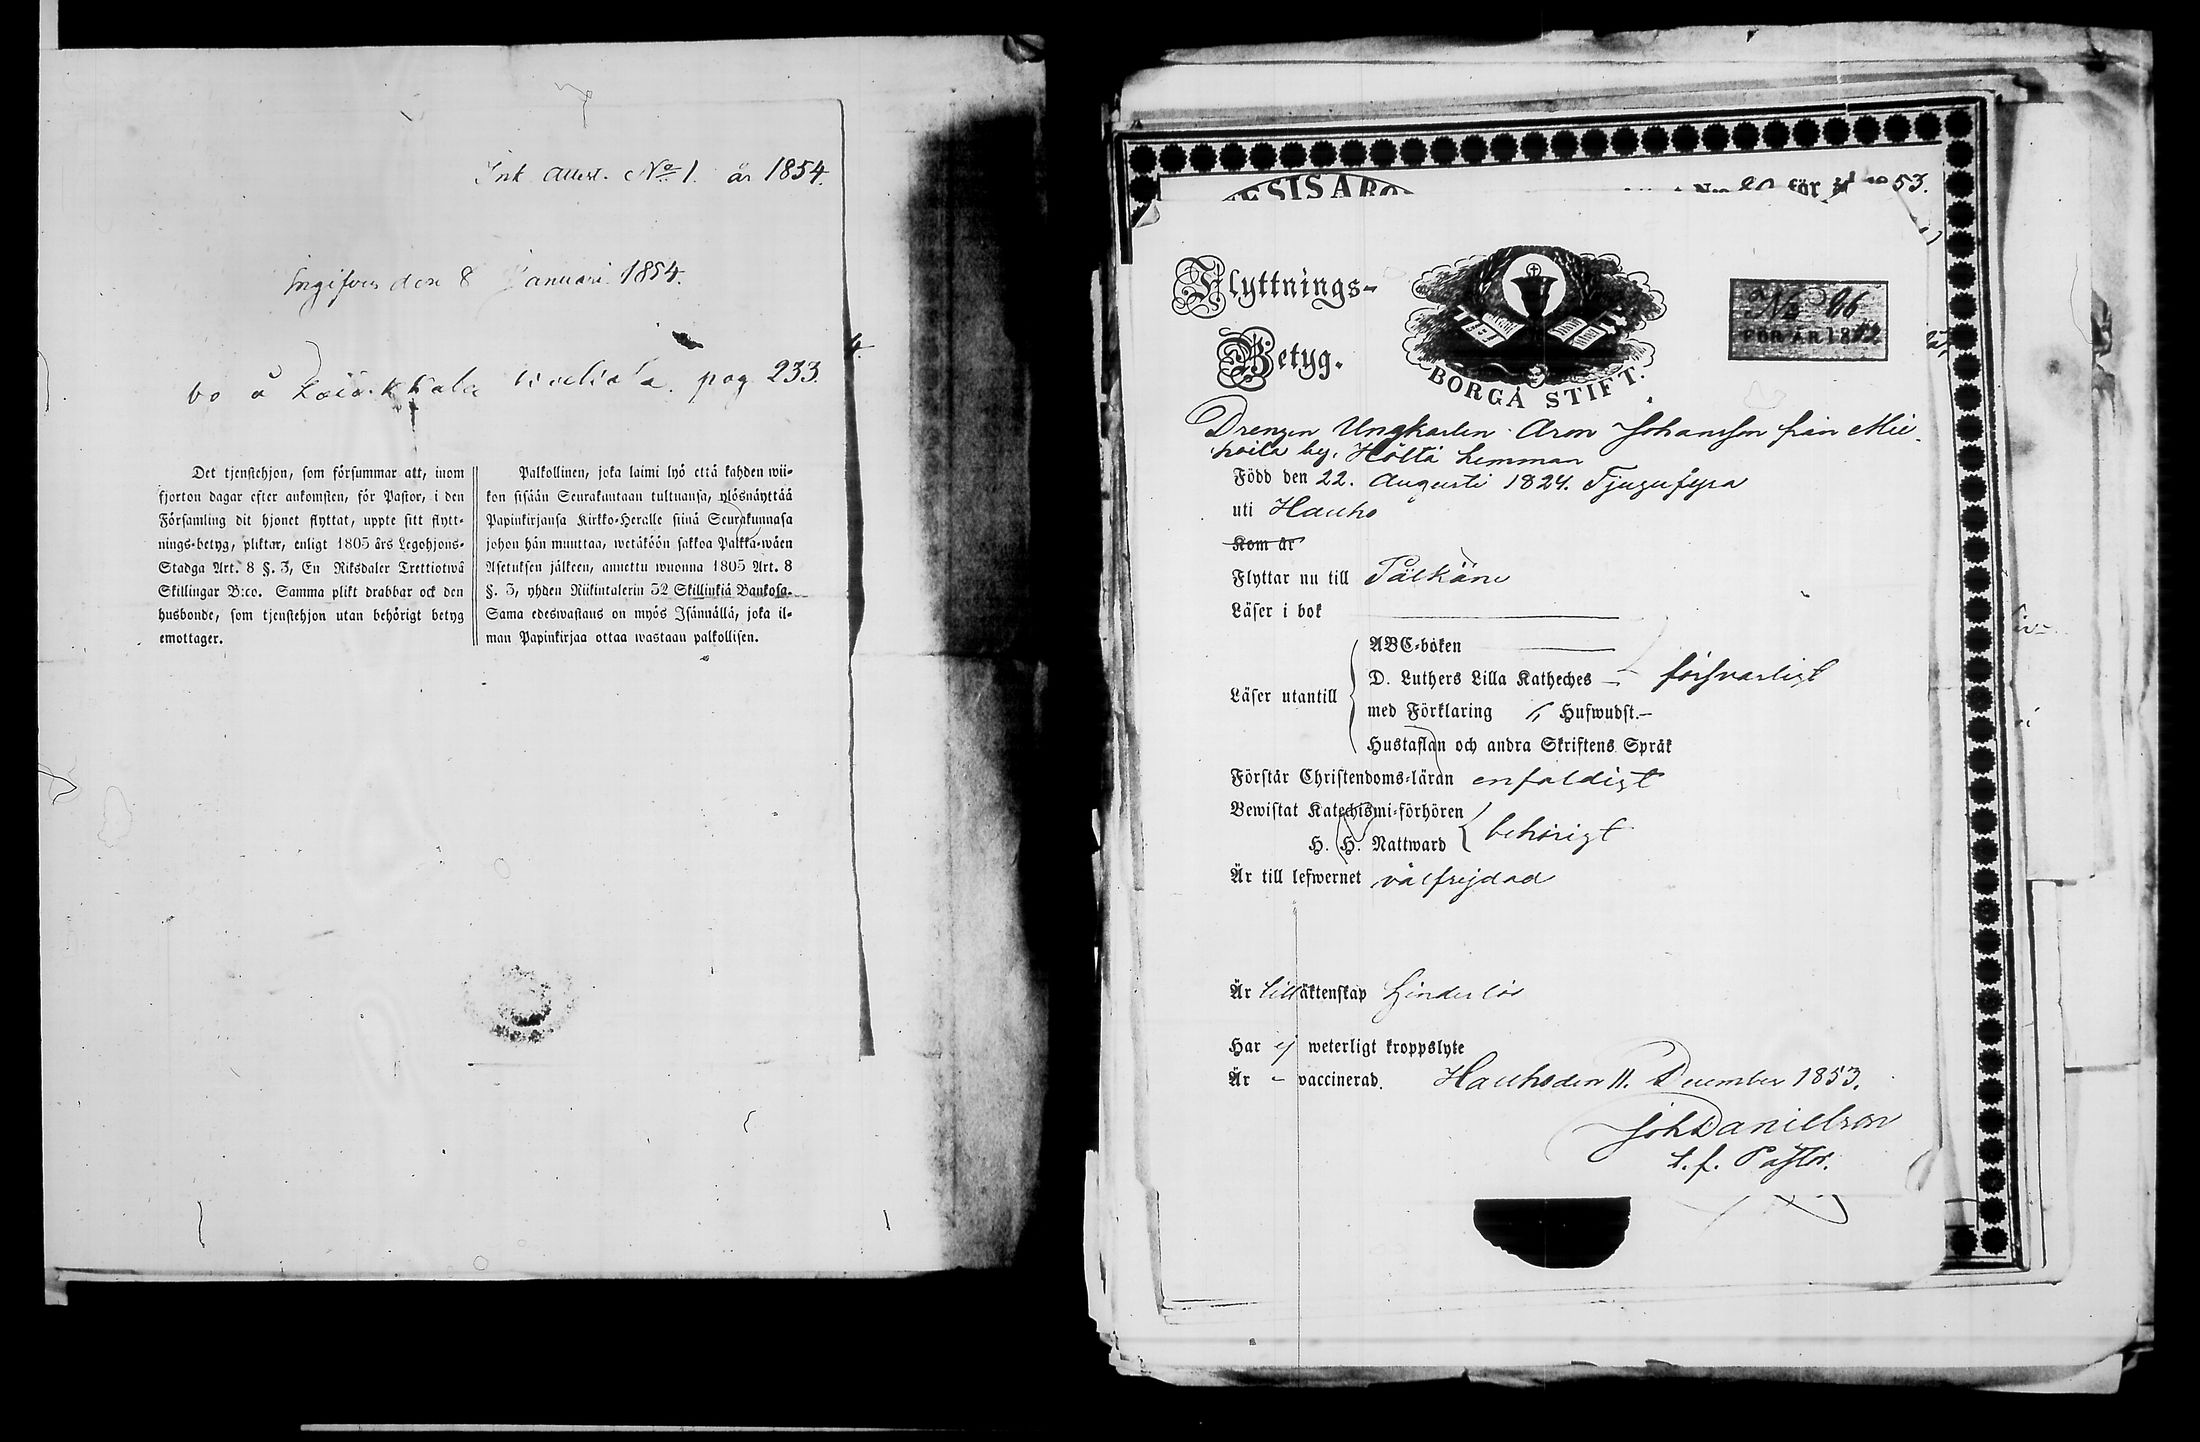 Ink. Attest. No 1. år 1854.
Ingifven den 8 Januari 1854.
bo å pag 233.
Det tjenstehjon, som försummar att, inom
fjorton dagar efter ankomsten, för Pastor, i den
Församling dit hjonet flyttat, uppte sitt flytt-
nings-betyg, pliktar, enligt 1805 års Legohjons-
Stadga Art. 8 §. 3, En Riksdaler Trettiotwå
Skillingar B:co. Samma plikt drabbar ock den
husbonde, som tjenstehjon utan behörigt betyg
emottager.
Palkollinen, joka laimi lyö että kahden wii-
kon sisään Seurakuntaan tultuansa, ylösnäyttää
Papinkirjansa Kirkko-Heralle siinä Seurakunnasa
johon hän muuttaa, wetäköön sakkoa Palkka-wäen
Asetuksen jälkeen, annettu wuonna 1805 Art. 8
§. 3, yhden Riikintalerin 32 Skillinkiä Bankosa.
Sama edeswastaus on myös Isännällä, joka il-
man Papinkirjaa ottaa wastaan palkollisen.
för 1853.
Flyttnings-
Betyg.
BORGÅ STIFT.
No 96
FÖR ÅR 18
Drengen Ungkarlen Aron Johansson från Mie-
hoila by, Hölttä hemman
Född den 22. Augusti 1824. Tjugufyra
uti Hauho
Kom år
Flyttar nu till Pälkäne
Läser i bok
Läser utantill
ABC-boken
D. Luthers Lilla Katheches försvarligt
med Förklaring 6 Hufwudst.
Hustaflan och andra Skriftens Språk
Förstår Christendoms-läran enfaldigt
Bewistat Katechismi-förhören
H. H. Nattward behörigt
Är till lefwernet välfrejdad
Är till äktenskap hinderlös
Har ej weterligt kroppslyte
Är - vaccinerad. Hauho den 11. December 1853.
Joh Danielson
t. f. Pastor.